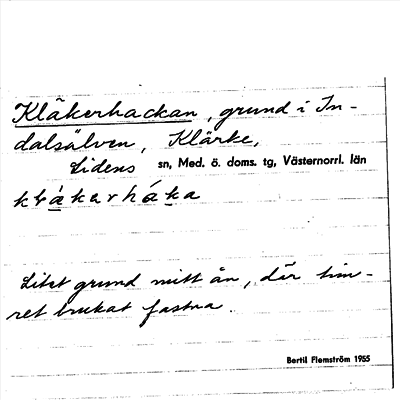 Kläkerhackan, grund i In-
dalsälven, Klärke,
Lidens sn, Med. ö. doms. tg, Västernorrl. län
Litet grund mitt i ån, där tim-
ret brukat fastna.
Bertil Flemström 1955